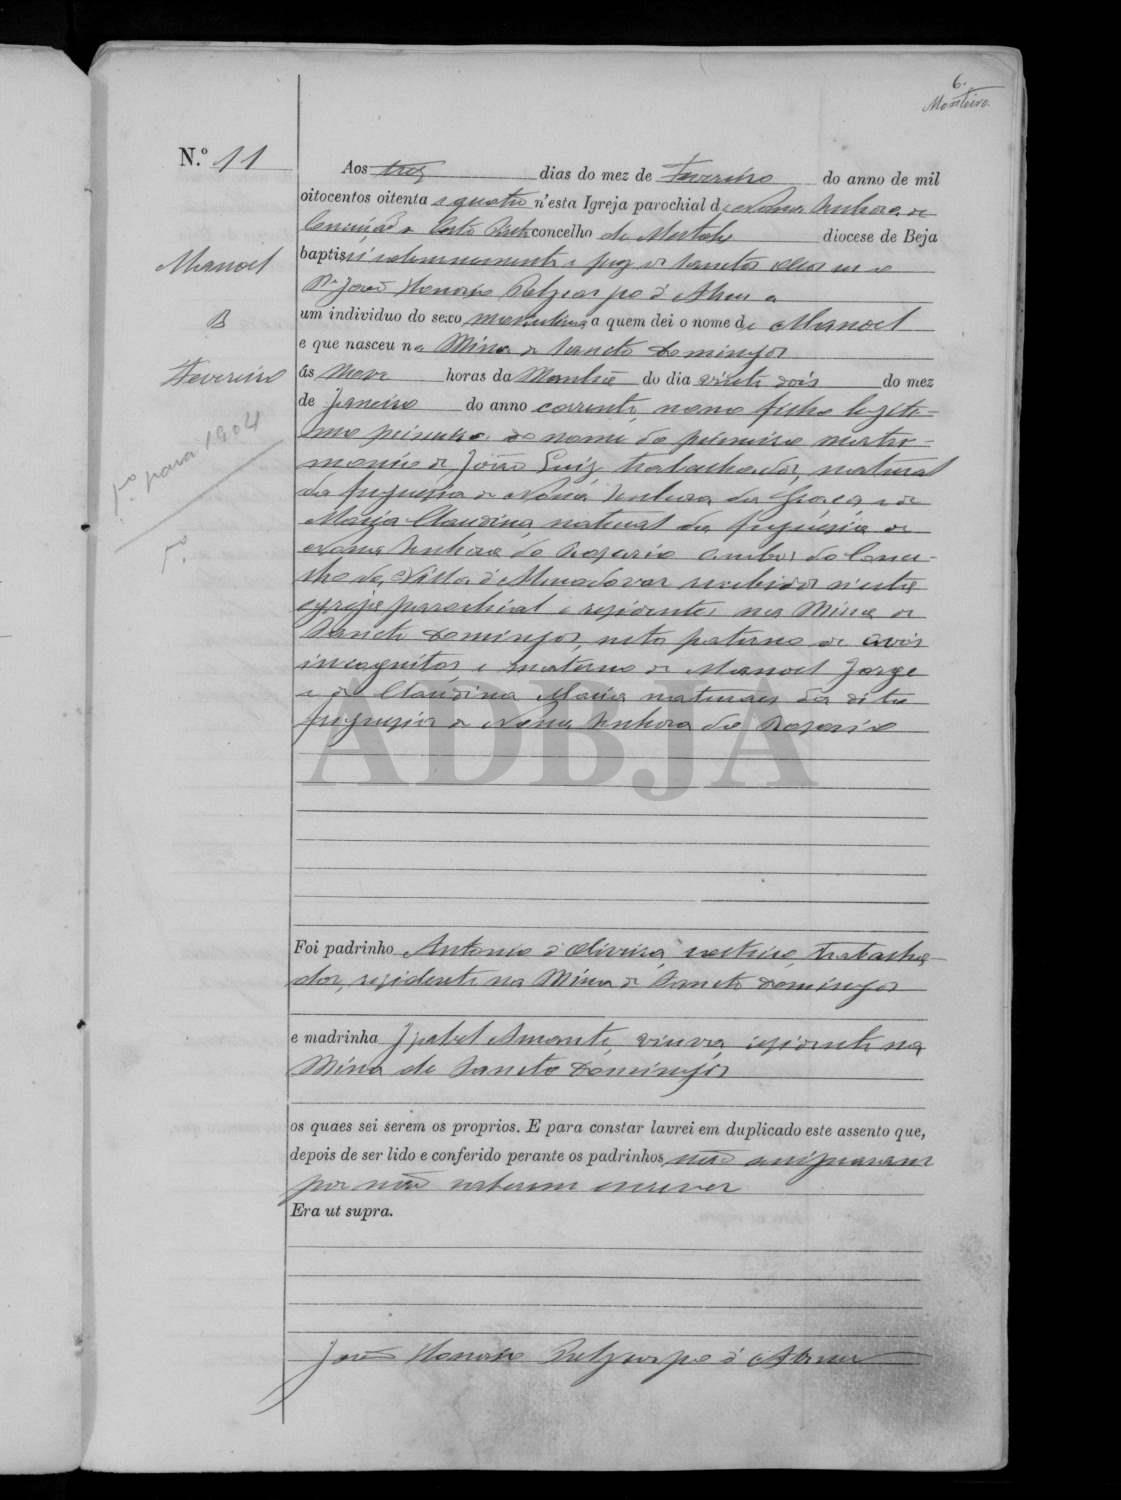 6.
Monteiro
N.º 11
Aos tres dias do mez de Fevereiro do anno de mil
oitocentos oitenta e quatro n'esta Igreja parochial de Nossa Senhora da
Conceição concelho de Mertola diocese de Beja
Manoel
baptisei solemnemente e puz os Sanctos Oleos eu o
P.e João Honorio d'Abreu a
B
um individuo do sexo masculino a quem dei o nome de Manoel
e que nasceu na Mina de Sancto Domingos
Fevereiro
ás nove horas da Manhã do dia vinte dois do mez
de Janeiro do anno corrente, filho legiti-
p.a para 1904
mo primeiro do nome do primeiro matri-
monio de João Luiz, trabalhador, natural
da freguesia de Nossa Senhora da Graça e de
Maria Claudina, natural da freguesia de
Nossa Senhora do Rosario ambos do Conce-
lho da Villa d'Almodovar recebidos n'esta
egreja parochial e residentes na Mina de
Sancto Domingos, neto paterno de avós
incognitos e materno de Manoel Jorge
e de Claudina Maria naturaes da dita
freguezia de Nossa Senhora do Rosario
ADBJA
Foi padrinho Antonio d'Oliveira, solteiro, trabalha-
dor, residente na Mina de Sancto Domingos
e madrinha Izabel Amante, viuva, residente na
Mina de Sancto Domingos
os quaes sei serem os proprios. E para constar lavrei em duplicado este assento que,
depois de ser lido e conferido perante os padrinhos não assignaram
por não saberem escrever
Era ut supra.
João Honorio d'Abreu